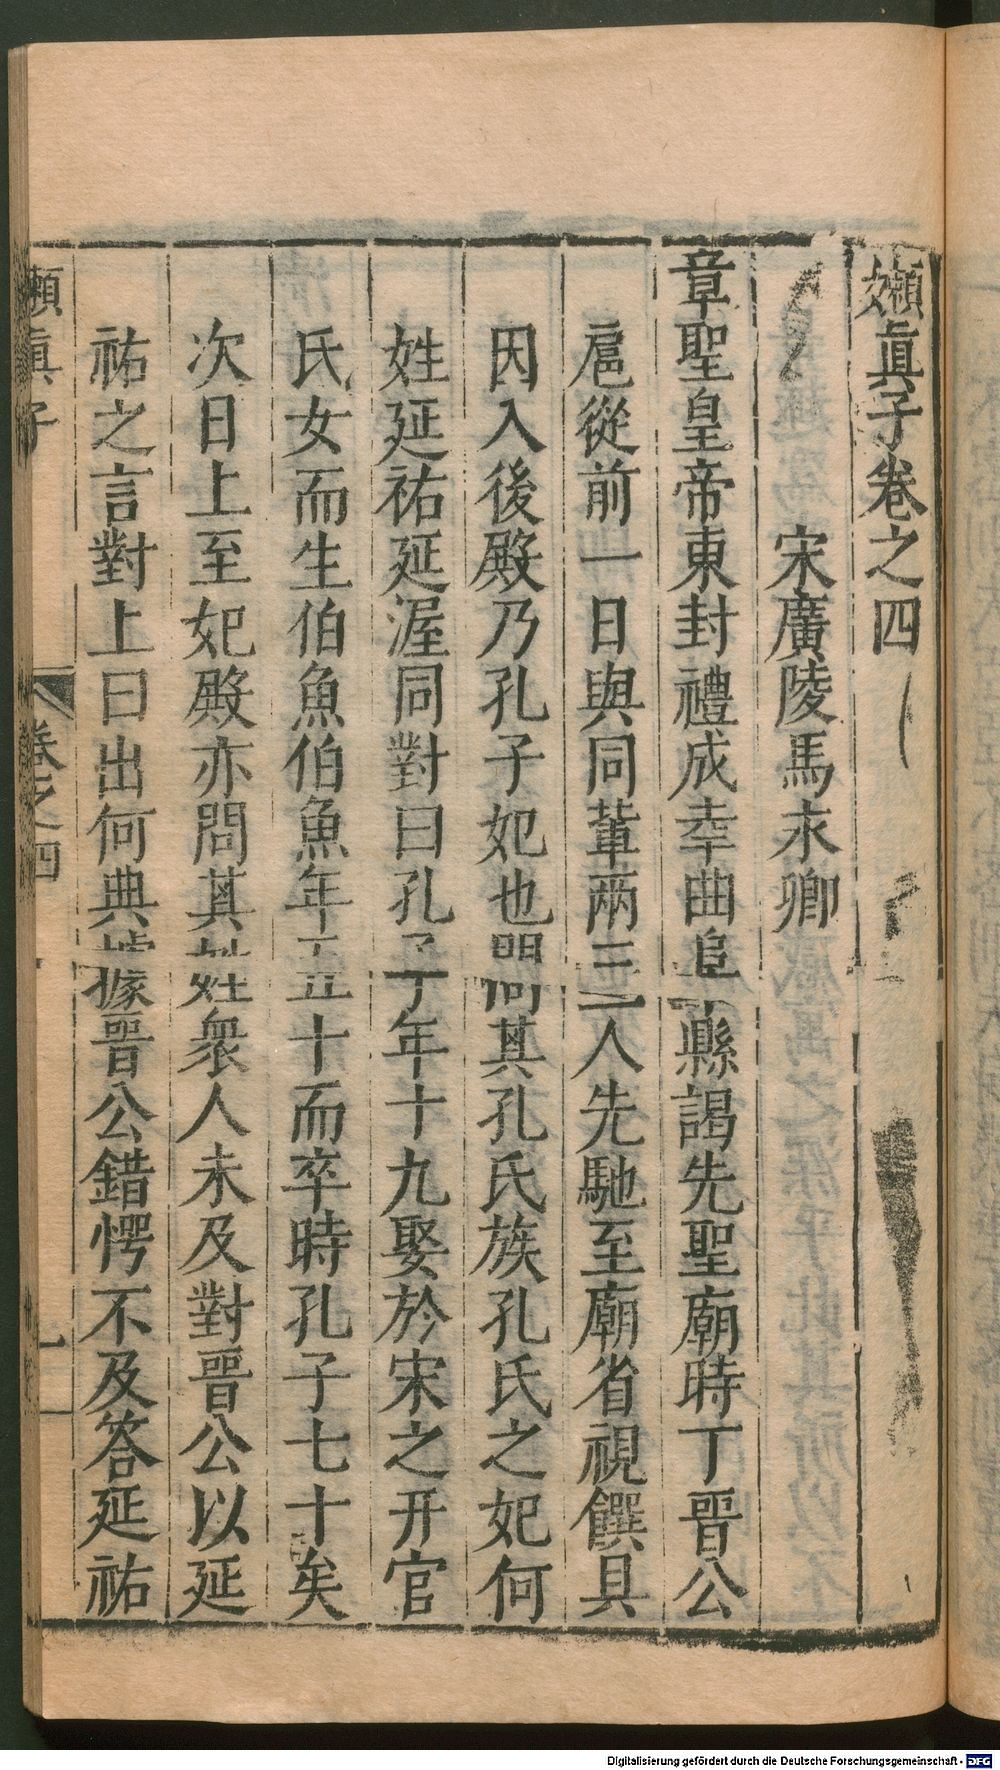 嬾眞子卷之四
宋廣陵馬永卿
章聖皇帝東封禮成幸曲阜縣謁先聖廟時丁晉公
扈從前一日與同輩兩三人先馳至廟省視饌具
因入後殿乃孔子妃也問其孔氏族孔氏之妃何
姓延祐延渥同對曰孔子年十九娶於宋之幵官
氏女而生伯魚伯魚年五十而卒時孔子七十矣
次日上至妃殿亦問其姓衆人未及對晉公以延
祐之言對上曰出何典據晉公錯愕不及答延祐
嬾眞子
卷之四
一
Digitalisierung gefördert durch die Deutsche Forschungsgemeinschaft - DFG